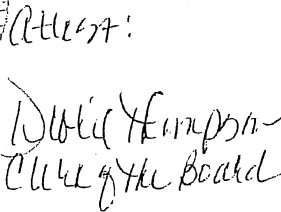 Attest:
Debbie Thompson
Clerk of the Board